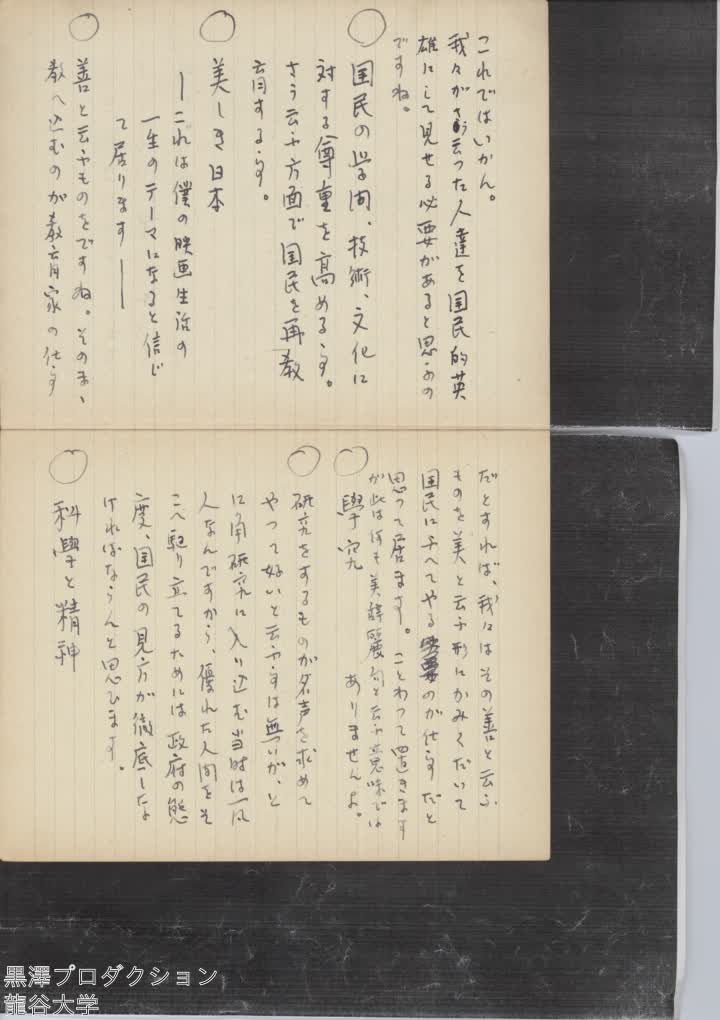 これではいかん。
我々がさう云つた人達を国民的英
雄にして見せる必要があると思ふの
ですね。
○ 国民の学問、技術、文化に
対する尊重を高める事。
さう云ふ方面で国民を再教
育する事。
○ 美しき日本
―これは僕の映画生活の
一生のテーマになると信じ
て居ります――
○ 善と云ふものをですね。そのまゝ
教へ込むのが教育家の仕事
だとすれば、我々はその善と云ふ
ものを美と云ふ形にかみくだいて
国民に与へてやるのが仕事だと
思つて居ます。ことわつて置きます
が此は何も美辞麗句と云ふ意味では
ありませんよ。
○ 學究
○ 研究をするものが名声を求めて
やつて好いと云ふ事は無いが、と
に角研究に入り込む当時は一凡
人なんですから、優れた人間をそ
こへ駆り立てるためには政府の態
度、国民の見方が徹底しな
ければならんと思ひます。
○ 科學と精神
黒澤プロダクション
龍谷大学